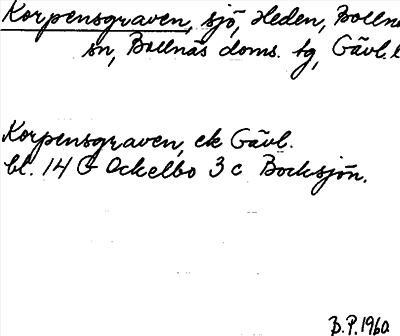 Korpensgraven, sjö, Heden, Bollnä
sn, Bollnäs doms. tg, Gävl. l
Korpensgraven, ek Gävl.
bl. 14 G Ockelbo 3 c Bocksjön.
B.P. 1960